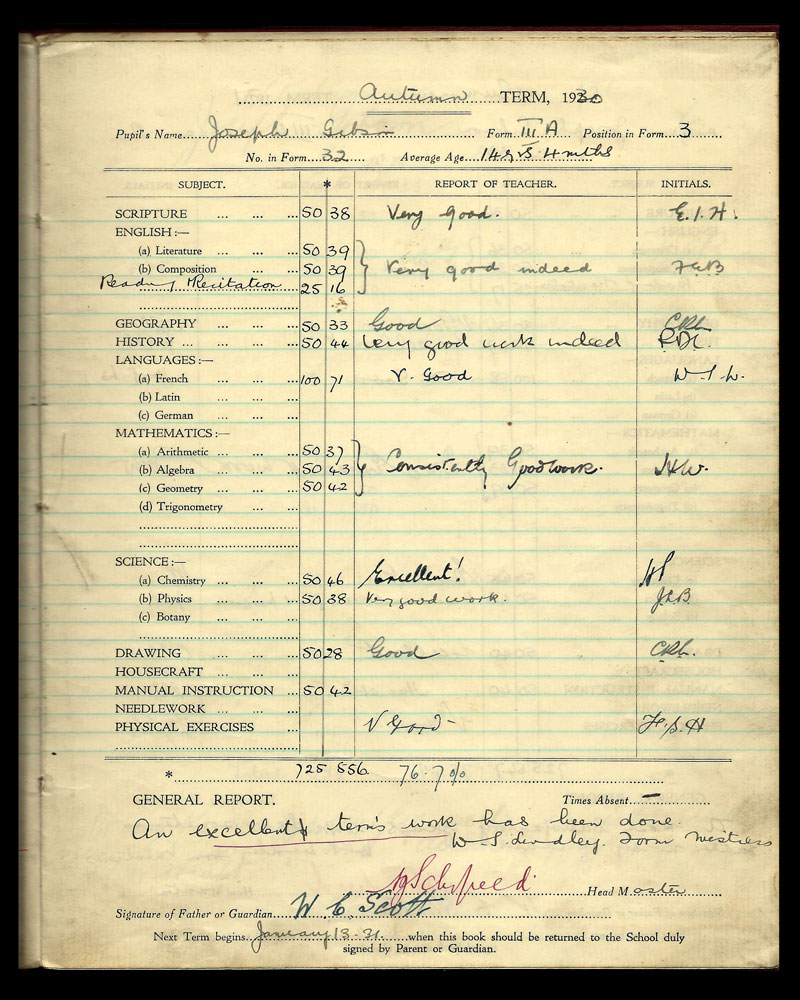 Autumn TERM, 1930
Pupil's Name Joseph Gibson Form III A Position in Form 3
No. in Form 32 Average Age 14 yrs 4 mths
SUBJECT. * REPORT OF TEACHER. INITIALS.
SCRIPTURE ... ... ... 50 38 Very good. E.I.H.
ENGLISH :—
(a) Literature ... ... 50 39
(b) Composition ... ... 50 39 Very good indeed
Reading & Recitation 25 16
GEOGRAPHY ... ... ... 50 33 Good
HISTORY ... ... ... ... 50 44 Very good work indeed
LANGUAGES :—
(a) French ... ... ... 100 71 V. Good
(b) Latin ... ... ...
(c) German ... ... ...
MATHEMATICS :—
(a) Arithmetic ... ... ... 50 37
(b) Algebra ... ... ... 50 43 Consistently Good work. H.W.
(c) Geometry ... ... ... 50 42
(d) Trigonometry ... ...
SCIENCE :—
(a) Chemistry ... ... ... 50 46 Excellent!
(b) Physics ... ... ... 50 38 Very good work.
(c) Botany ... ... ...
DRAWING ... ... ... 50 28 Good
HOUSECRAFT ... ... ...
MANUAL INSTRUCTION ... 50 42
NEEDLEWORK ... ... ...
PHYSICAL EXERCISES ... V Good -
* 725 556. 76.7 %
GENERAL REPORT. Times Absent —
An excellent term's work has been done.
W S Lindley. Form Mistress
Head Master
Signature of Father or Guardian W. C. Scott
Next Term begins January 13 - 31. when this book should be returned to the School duly
signed by Parent or Guardian.